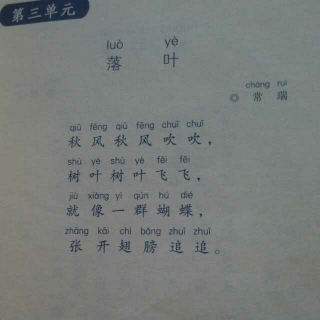 第三单元
luò yè
落 叶
cháng ruì
◎ 常 瑞
qiū fēng qiū fēng chuī chuī
秋 风 秋 风 吹 吹，
shù yè shù yè fēi fēi
树 叶 树 叶 飞 飞，
jiù xiàng yì qún hú dié
就 像 一 群 蝴 蝶，
zhāng kāi chì bǎng zhuī zhuī
张 开 翅 膀 追 追。